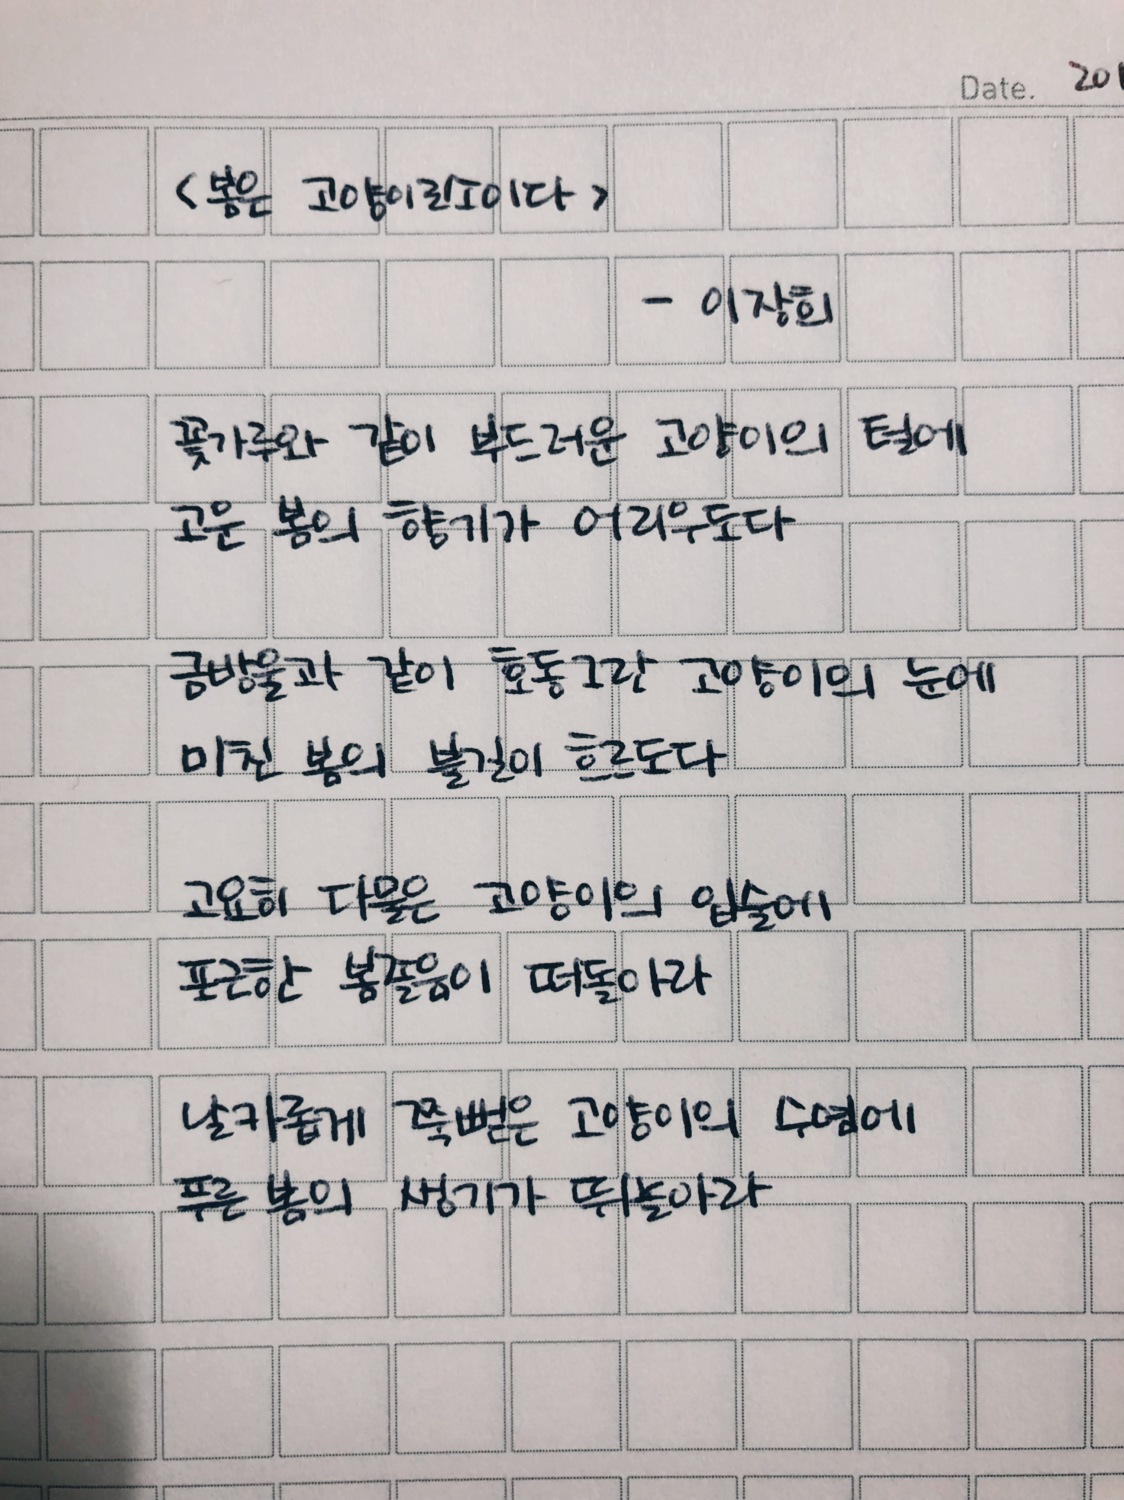 Date. 201
<봄은 고양이로소이다>
- 이장희
꽃가루와 같이 부드러운 고양이의 털에
고운 봄의 향기가 어리우도다
금방울과 같이 호동그란 고양이의 눈에
미친 봄의 불길이 흐르도다
고요히 다물은 고양이의 입술에
포근한 봄졸음이 떠돌아라
날카롭게 쭉뻗은 고양이의 수염에
푸른 봄의 생기가 뛰놀아라